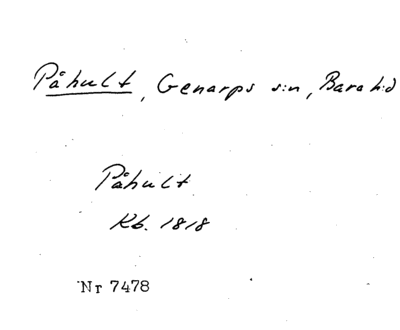 Påhult, Genarps s:n, Bara hd
Påhult
Kb. 1818
Nr 7478